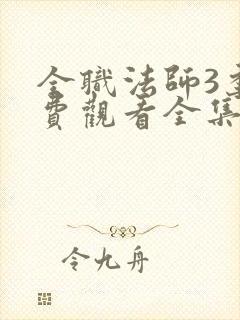 全職法師3季
費觀看全集
令九舟